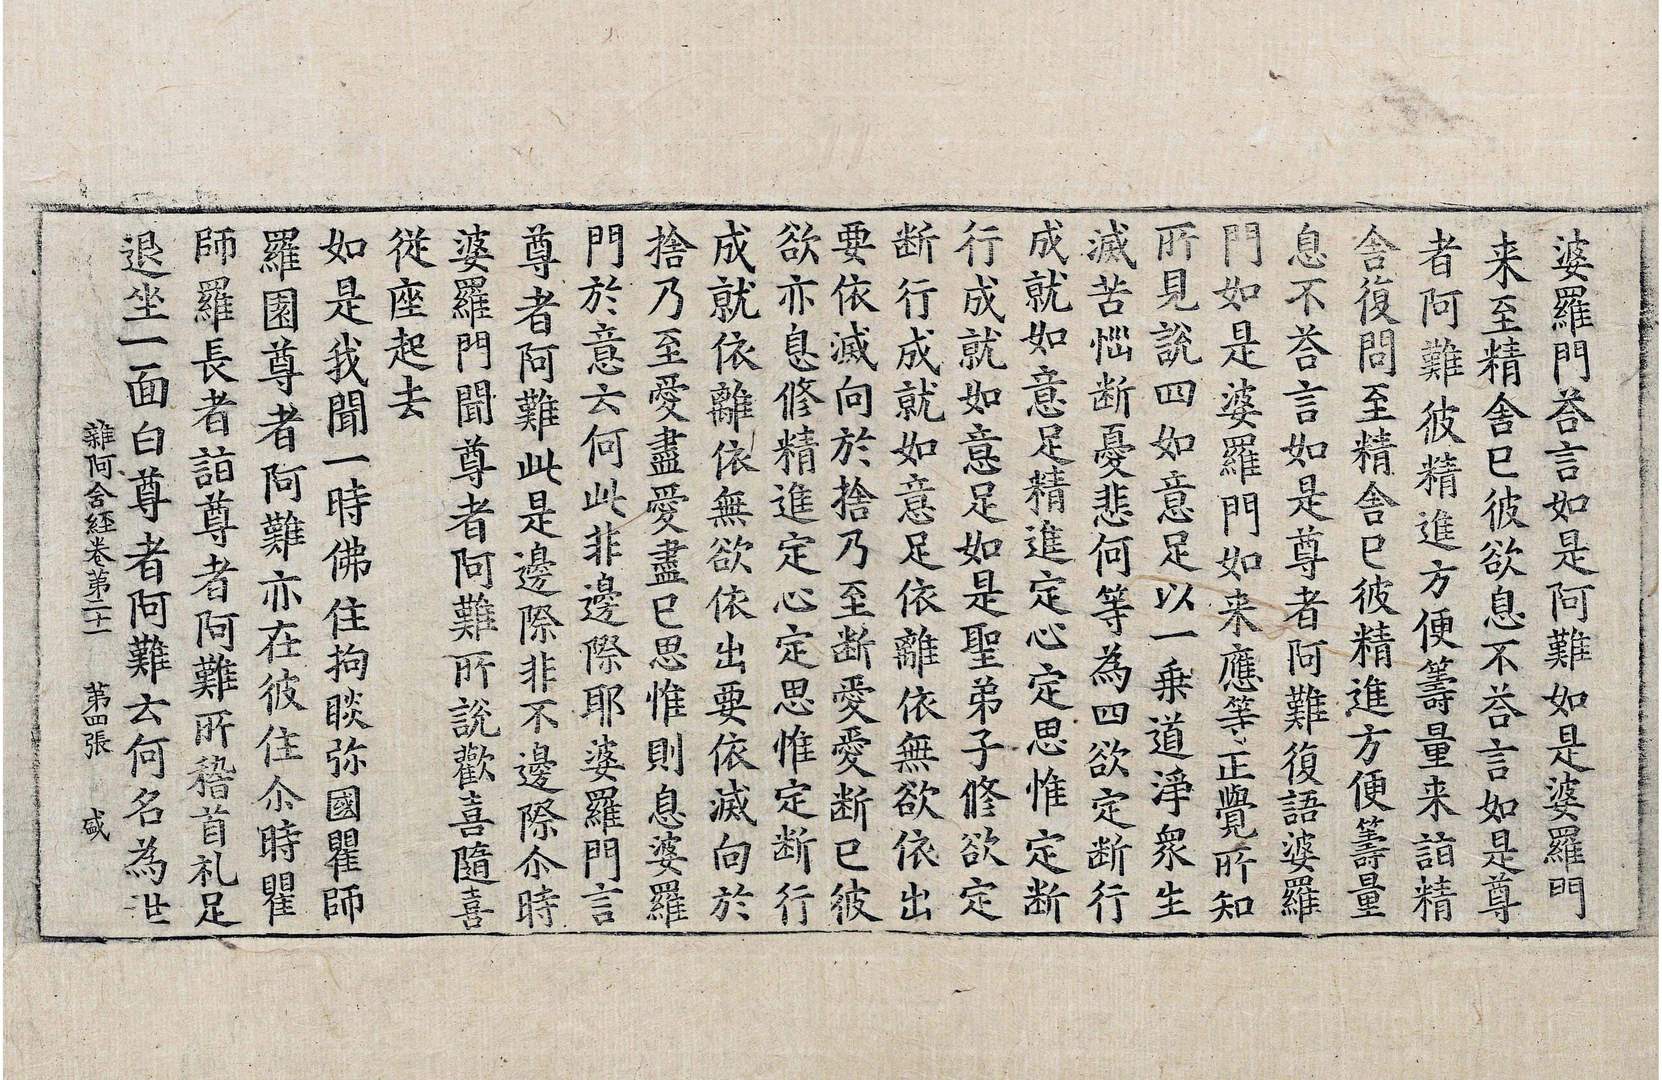 婆羅門荅言如是阿難如是婆羅門
来至精舍已彼欲息不荅言如是尊
者阿難彼精進方便籌量来詣精
舍復問至精舍已彼精進方便籌量
息不荅言如是尊者阿難復語婆羅
門如是婆羅門如来應等正覺所知
所見說四如意足以一乗道淨衆生
滅苦惱断憂悲何等為四欲定断行
成就如意足精進定心定思惟定断
行成就如意足如是聖弟子修欲定
断行成就如意足依離依無欲依出
要依滅向於捨乃至断愛愛断已彼
欲亦息修精進定心定思惟定断行
成就依離依無欲依出要依滅向於
捨乃至愛盡愛盡已思惟則息婆羅
門於意云何此非邊際耶婆羅門言
尊者阿難此是邊際非不邊際尒時
婆羅門聞尊者阿難所說歡喜隨喜
從座起去
如是我聞一時佛住拘睒弥國瞿師
羅園尊者阿難亦在彼住尒時瞿
師羅長者詣尊者阿難所稽首礼足
退坐一面白尊者阿難云何名為世
雜阿含經卷第二十一 第四張 盛